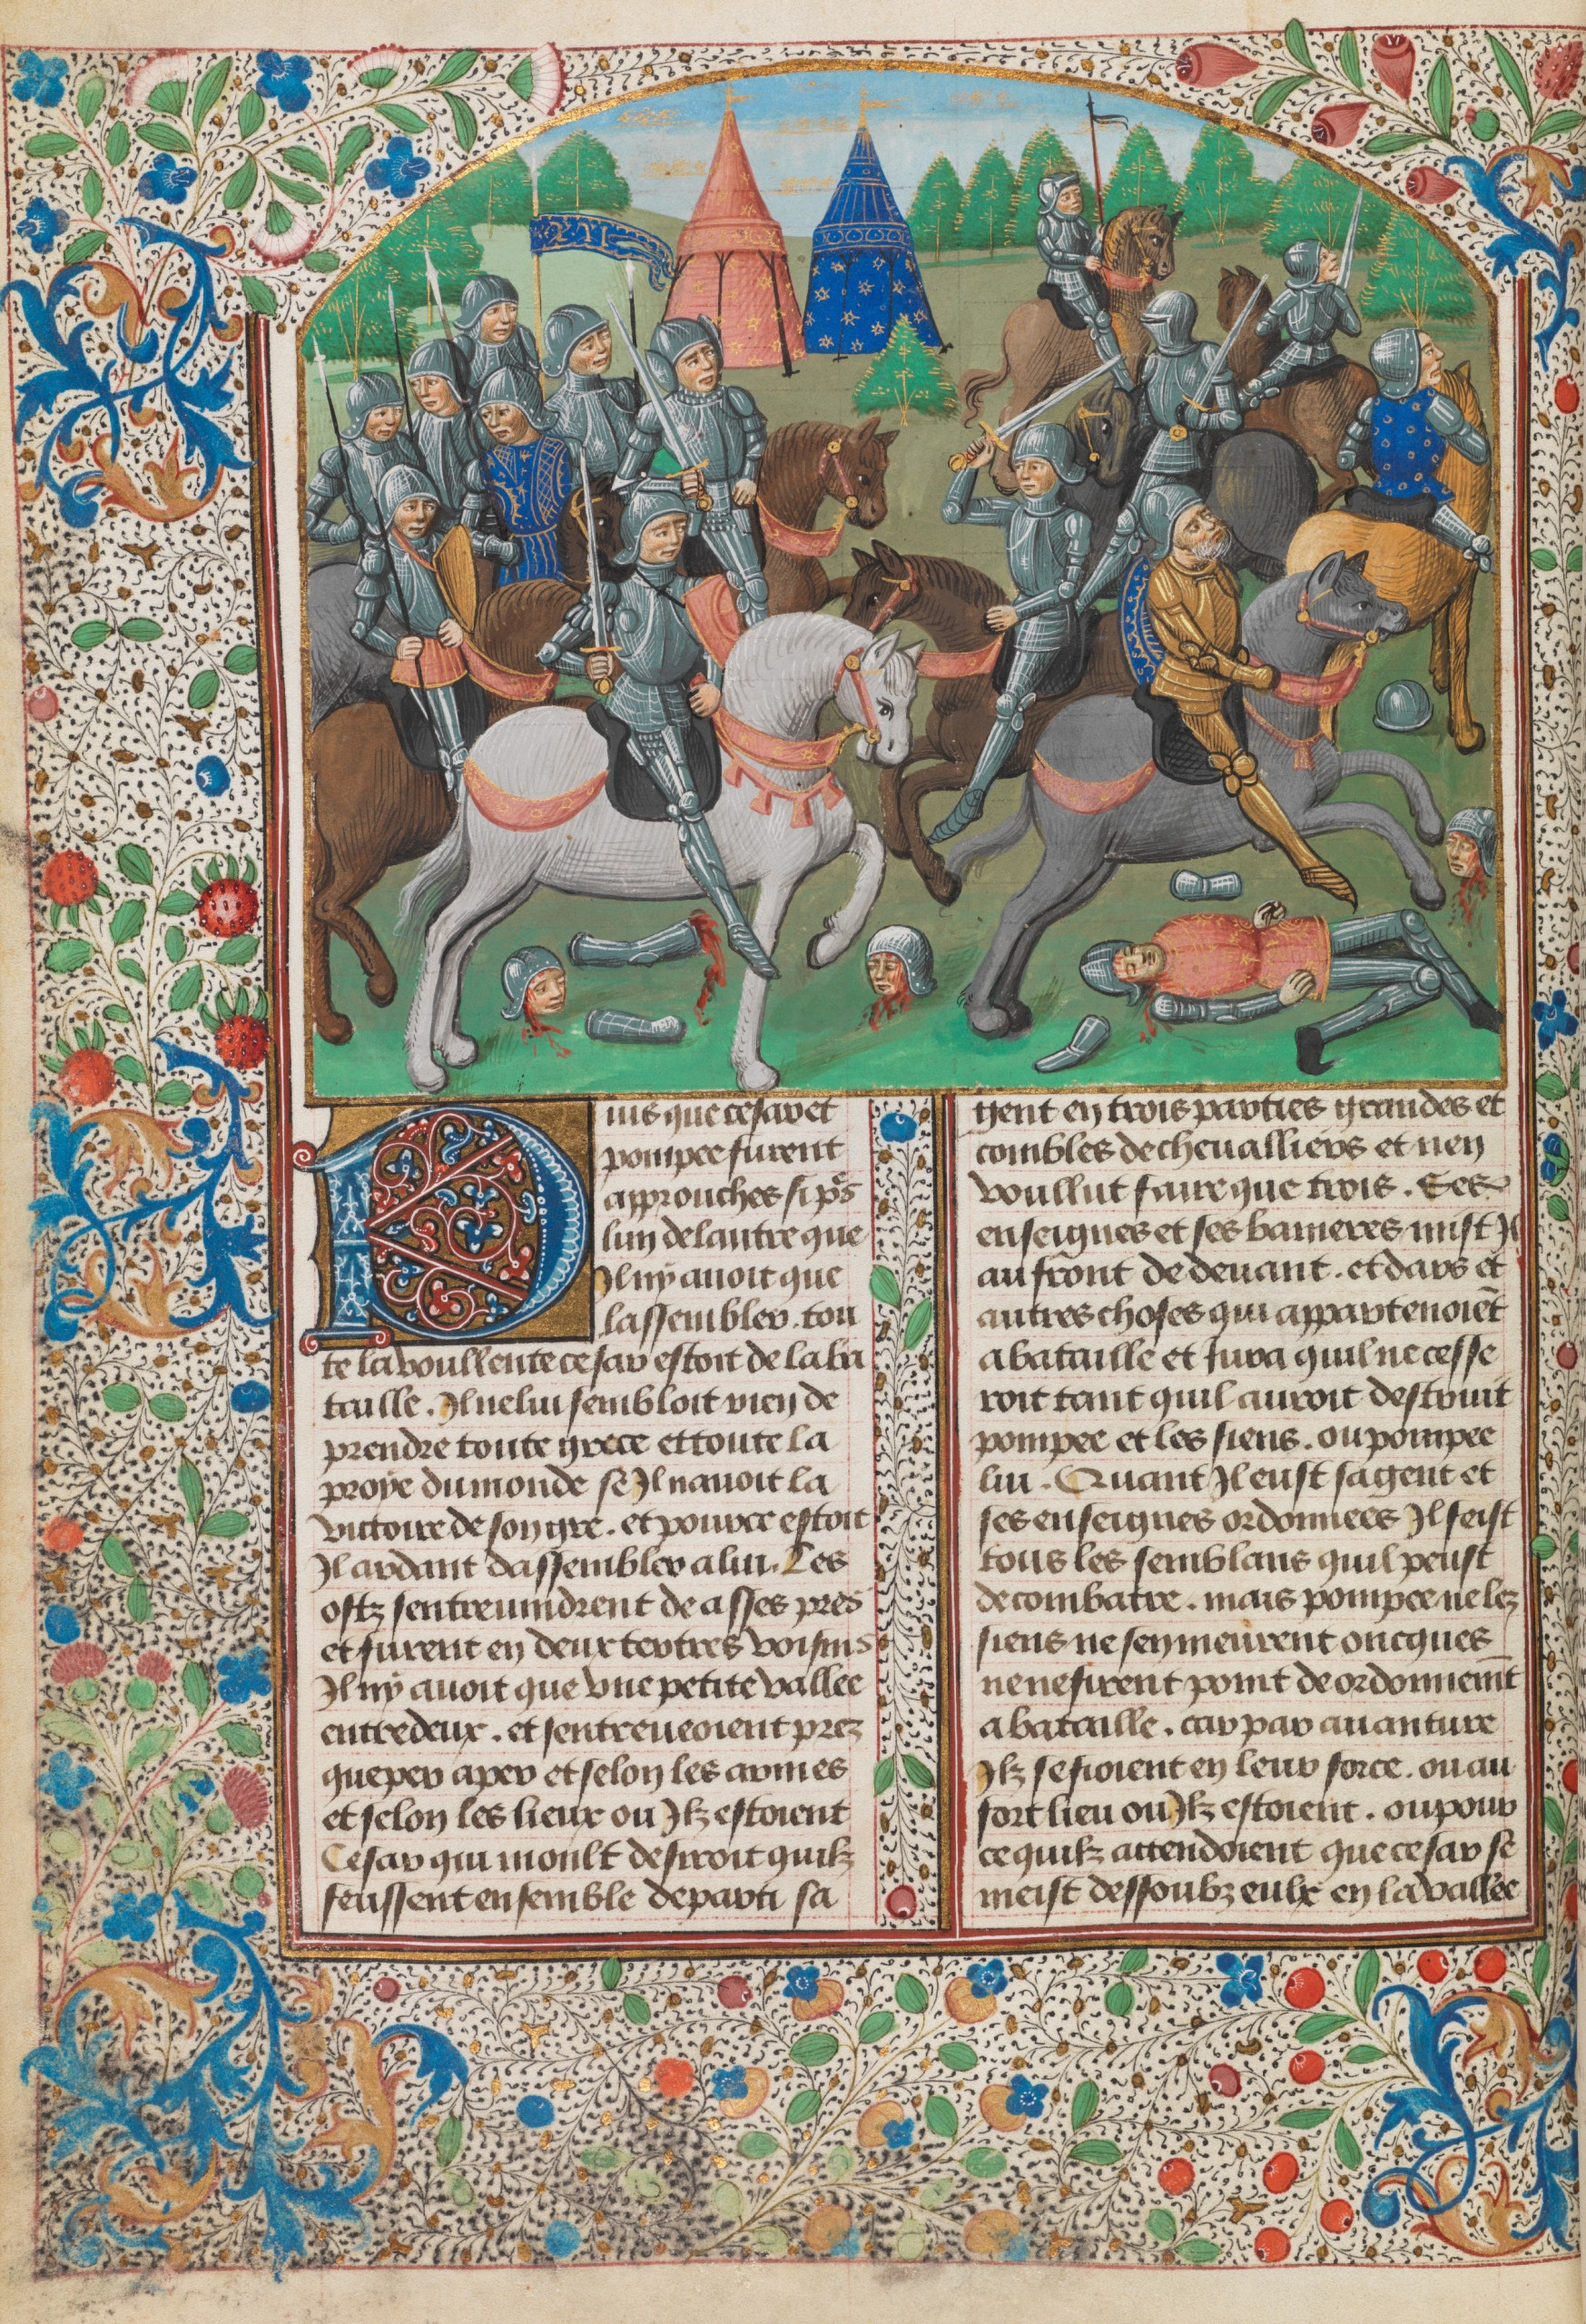 D
uis que cesar et
pompee furent
approuches si ps̃
lun de lautre que
Il ny auoit que
lassembler. tou
te la voullente cesar estoit de la ba
taille. Il ne lui sembloit rien de
prendre toute grece et toute la
proye du monde se Il nauoit la
victoire de son gre. et pource estoit
Il ardant dassembler a lui. Les
ostz sentreuindrent de asses pres
et furent en deux tertres voisins
Il ny auoit que vne petite vallee
entredeux. et sentreueoient prez
que per a per et selon les armes
et selon les lieux ou Ilz estoient
Cesar qui moult desiroit quilz
feussent ensemble departi sa
gent en trois parties grandes et
combles de cheualliers et nen
voullut faire que trois. Ses
enseignes et ses banieres mist Il
au front de deuant. et dars et
autres choses qui appartenoiẽt
a bataille et Iura quil ne cesse
roit tant quil auroit destruit
pompee et les siens. ou pompee
lui. Quant Il eust sa gent et
ses enseignes ordonnees Il feist
tous les semblans quil peust
de combatre. mais pompee ne lez
siens ne sen meurent oncques
ne ne firent point de ordonnemẽt
a bataille. car par auanture
Ilz se fioient en leur force. ou au
fort lieu ou Ilz estoient. ou pour
ce quilz attendoient que cesar se
meist dessoubz eulx en la vallee